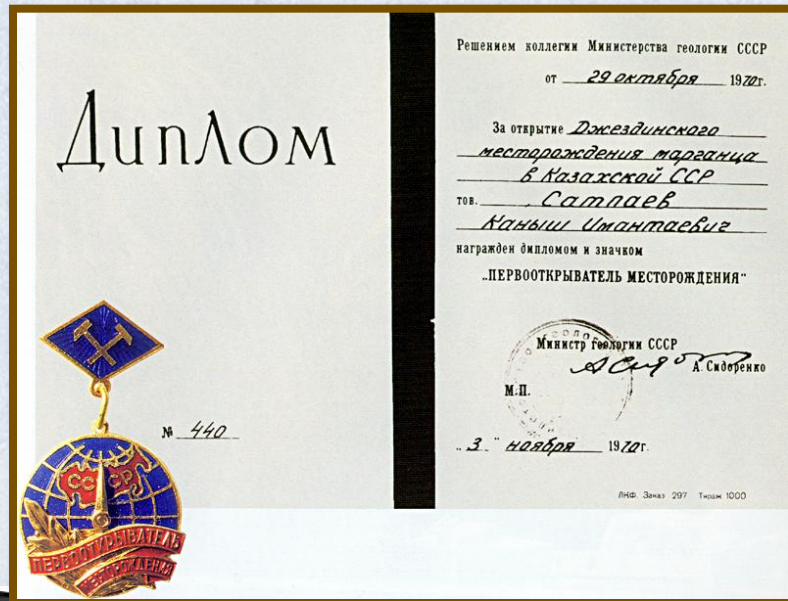 Диплом
№ 440
СССР
ПЕРВООТКРЫВАТЕЛЬ
МЕСТОРОЖДЕНИЯ
Решением коллегии Министерства геологии СССР
от 29 октября 1970г.
За открытие Джездинского
месторождения марганца
в Казахской ССР
тов. Сатпаев
Каныш Имантаевич
награжден дипломом и значком
„ПЕРВООТКРЫВАТЕЛЬ МЕСТОРОЖДЕНИЯ"
Министр геологии СССР
А. Сидоренко
М.П.
„3" ноября 1970г.
ЛКФ. Заказ 297 Тираж 1000